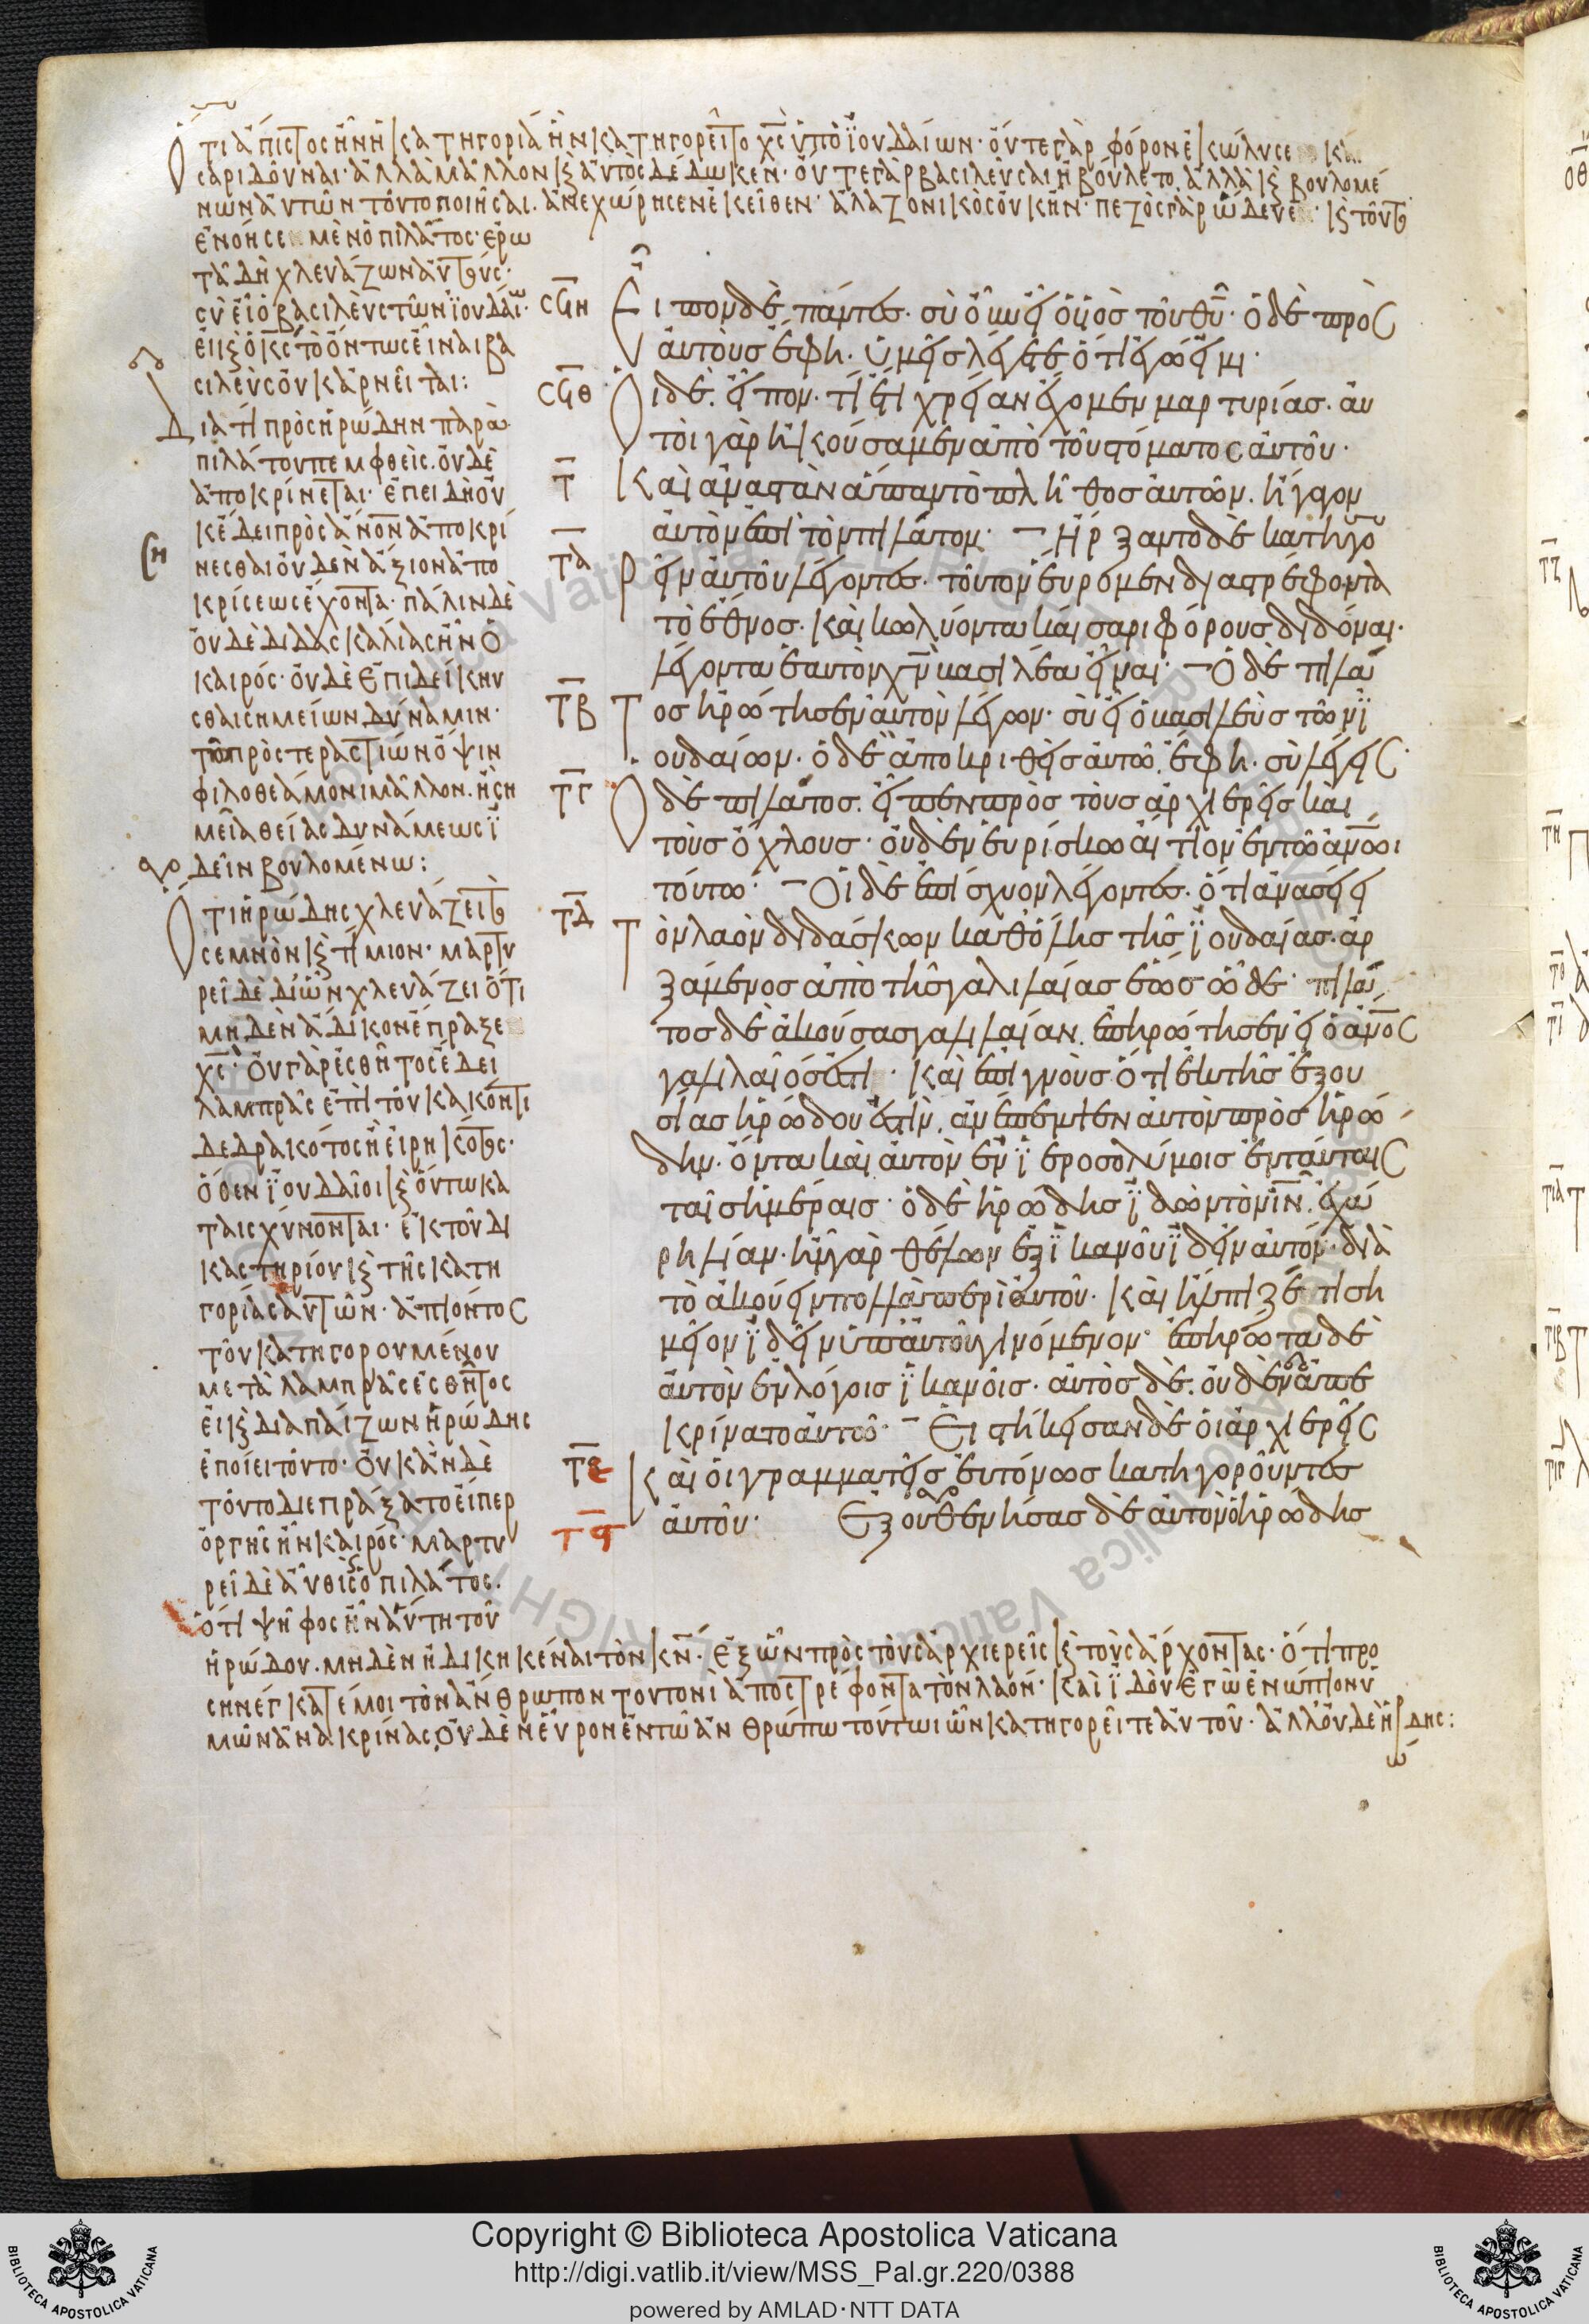 ὅτι ἄπιστος ἦν ἡ κατηγορία ἣν κατηγορεῖτο χς ὑπὸ ϊουδαίων· οὔτε γὰρ φόρον ἐκώλυσε
σαρι δοῦναι· ἀλλὰ μᾶλλον κ αὐτὸς δέδωκεν· οὔτε γὰρ βασιλεῦσαι ἠβούλετο ἀλλὰ κ βουλομέ
νων αὐτῶν τοῦτο ποιῆσαι. ἀνεχώρησεν ἐκεῖθεν· ἀλαζονικὸς οὐκ ἦν· πεζὸς γὰρ ὥδευε· κ τοῦτο
ἐνόησε μὲν ὁ πιλάτος· ἐρω
τᾷ δὴ χλευάζων αὐτούς·
σὺ εἶ ὁ βασιλεὺς τῶν ϊουδαίω·
εἰ κ ὁ κς τὸ ὄντως εἶναι βα
σιλεὺς οὐκ ἀρνεῖται:
Διατί πρὸς ἡρώδην παρὰ
πιλάτου πεμφθεὶς. οὐδὲ
ἀποκρίνεται· ἐπειδὴ οὐ
κ ἔδει πρὸς ανον ἀποκρί
νεσθαι οὐδὲν ἄξιον ἀπο
κρίσεως ἔχοντα· πάλιν δὲ
οὐδὲ διδασκαλίας ἦν ὁ
καιρός· οὐδὲ ἐπιδείκνυ
σθαι σημείων δύναμιν·
πρὸς τεραστίων ὄψιν
φιλοθεάμονι μᾶλλον. ἢ ση
μεῖα θείας δυνάμεως ϊ
δεῖν βουλομένω:
Ὅτι ἡρώδης χλευάζει τὸ
σεμνὸν κ τίμιον· μαρτυ
ρεῖ δὲ δι ὧν χλευάζει ὅτι
μηδὲν ἄδικον ἔπραξε
χς· οὐ γὰρ ἐσθῆτος ἔδει
λαμπρᾶς ἐπὶ τὸν κακόν τι
δεδρακότος ἢ εἰρηκότος·
ὅθεν ϊουδαῖοι κ οὕτω κα
ταισχύνονται· ἐκ τοῦ δι
καστηρίου κ τῆς κατη
γορίας αὐτῶν· ἀπιόντος
τοῦ κατηγορουμένου
μετὰ λαμπρᾶς ἐσθῆτος
εἰ κ διαπαίζων ἡρώδης
ἐποίει τοῦτο· οὐκ ἂν δὲ
τοῦτο διεπράξατο εἴπερ
ὀργῆς ἦν καιρός· μαρτυ
ρεῖ δὲ αὖθις ὁ πιλάτος.
ὅτι ψῆφος ἦν αὕτη τοῦ
ἡρώδου. μηδὲν ἠδικηκέναι τὸν κν· ἐξ ὧν πρὸς τοὺς ἀρχιερεῖς κ τοὺς ἄρχοντας· ὅτι προ
σηνέγκατέ μοι τὸν ἄνθρωπον τουτονὶ ἀποστρέφοντα τὸν λαόν· καὶ ϊδοὺ ἐγὼ ἐνώπιον ὑ
μῶν ἀνακρίνας, οὐδὲν εὗρον ἐν τῶ ἀνθρώπω τούτωι ὧν κατηγορεῖτε αὐτοῦ· ἀλλ οὐδὲ ἡρώδης:
σϟη Εἶπον δὲ πάντες. σὺ οὖν εἶ ὁ υἱὸς τοῦ θυ· ὁ δὲ πρὸς
αὐτοὺς ἔφη. ὑμεῖς λέγετε ὅτι ἐγώ εἰμι·
σϟθ Οἱ δὲ. εἶπον. τί ἔτι χρείαν ἔχομεν μαρτυρίας. αὐ
τοὶ γὰρ ἠκούσαμεν ἀπὸ τοῦ στόματος αὐτοῦ·
τ Καὶ ἀναστὰν ἅπαν τὸ πλῆθος αὐτῶν. ἤγαγον
αὐτὸν ἐπὶ τὸν πιλάτον· Ἤρξαντο δὲ κατηγο
τα ρεῖν αὐτοῦ λέγοντες. τοῦτον εὕρομεν διαστρέφοντα
τὸ ἔθνος. καὶ κωλύοντα καίσαρι φόρους διδόναι·
λέγοντα ἑαυτὸν χν βασιλέα εἶναι· Ὁ δὲ πιλᾶ
τβ τος ἠρώτησεν αὐτὸν λέγων· σὺ εἶ ὁ βασιλεὺς τῶν ϊ
ουδαίων. ὁ δὲ ἀποκριθεὶς αὐτῶ. ἔφη. σὺ λέγεις·
τγ Ὁ δὲ πιλάτος. εἶπεν πρὸς τοὺς ἀρχιερεῖς καὶ
τοὺς ὄχλους· οὐδὲν εὑρίσκω αἴτιον ἐν τῶ ανωι
τούτω· Οἱ δὲ ἐπίσχυον λέγοντες. ὅτι ἀνασείει
τδ τὸν λαὸν διδάσκων καθ ὅλης τῆς ϊουδαίας. ἀρ
ξάμενος ἀπὸ τῆς γαλιλαίας ἕως ὧδε· πιλᾶ
τος δὲ ἀκούσας γαλιλαίαν. ἐπηρώτησεν εἰ ὁ ανος
γαλιλαῖός ἐστι· καὶ ἐπιγνοὺς ὅτι ἐκ τῆς ἐξου
σίας ἡρώδου ἐστὶν. ἀνέπεμψεν αὐτὸν πρὸς ἡρώ
δην. ὄντα καὶ αὐτὸν ἐν ϊεροσολύμοις ἐν ταύταις
ταῖς ἡμέραις· ὁ δὲ ἡρώδης ϊδὼν τὸν ιν. ἐχά
ρη λίαν. ἦν γὰρ θέλων ἐξ ϊκανοῦ ϊδεῖν αὐτόν· διὰ
τὸ ἀκούειν πολλὰ περὶ αὐτοῦ. καὶ ἤλπιζέ τι ση
μεῖον ϊδεῖν ὑπ αὐτοῦ γινόμενον· ἐπηρώτα δὲ
αὐτὸν ἐν λόγοις ϊκανοῖς. αὐτὸς δὲ. οὐδὲν ἀπε
κρίνατο αὐτῶ· Εἱστήκεισαν δὲ οἱ ἀρχιερεῖς
τε καὶ οἱ γραμματεῖς εὐτόνως κατηγοροῦντες
τϛ αὐτοῦ· Ἐξουθενήσας δὲ αὐτὸν ὁ ἡρώδης
Copyright © Biblioteca Apostolica Vaticana
http://digi.vatlib.it/view/MSS_Pal.gr.220/0388
powered by AMLAD·NTT DATA
BIBLIOTECA APOSTOLICA VATICANA
BIBLIOTECA APOSTOLICA VATICANA